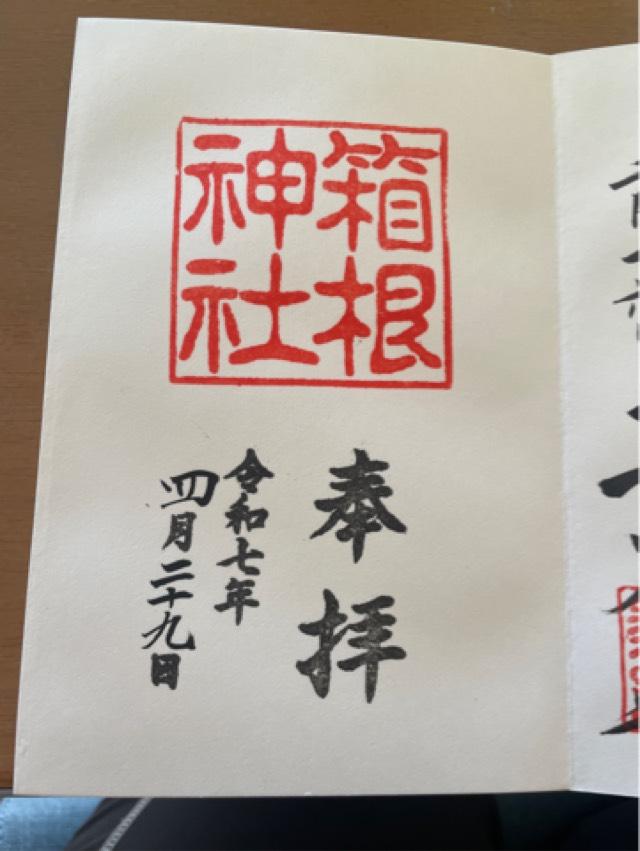 箱根
神社
奉拝
令和七年
四月二十九日